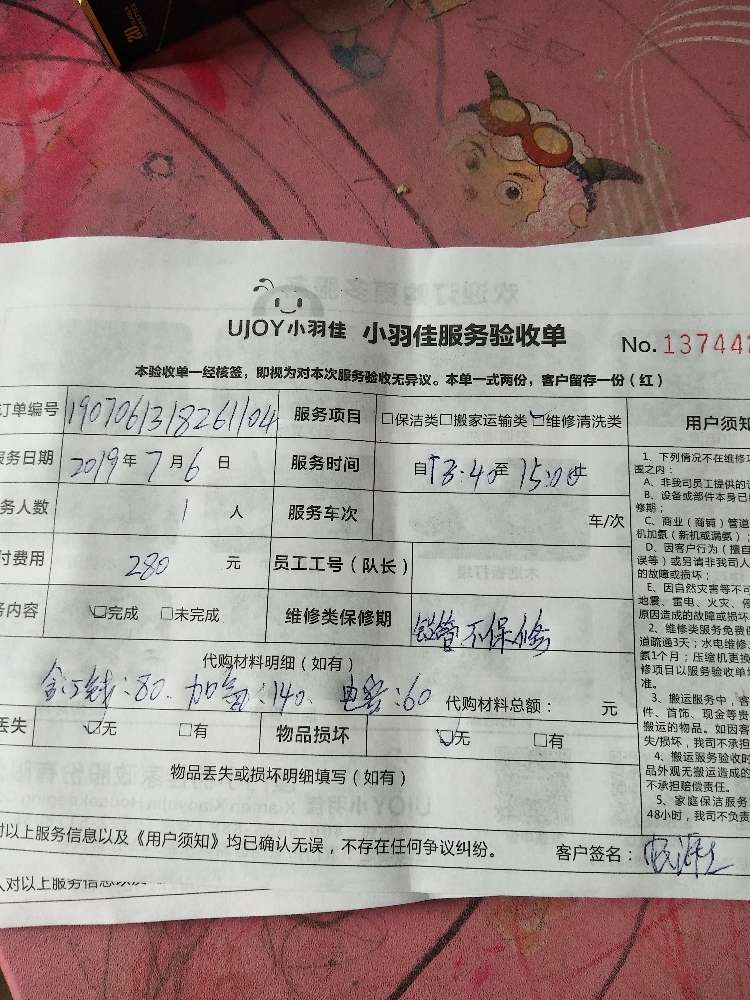 UJOY小羽佳 小羽佳服务验收单 No. 137447
本验收单一经核签，即视为对本次服务验收无异议。本单一式两份，客户留存一份（红）
订单编号 1907061318261104 服务项目 □保洁类□搬家运输类☑维修清洗类 用户须知
服务日期 2019年7月6日 服务时间 自13:40至15:00止
务人数 1 人 服务车次 车/次
付费用 280 元 员工工号（队长）
务内容 ☑完成 □未完成 维修类保修期 不保修
代购材料明细（如有）
:80. 加氟:140. 电容:60 代购材料总额： 元
丢失 ☑无 □有 物品损坏 ☑无 □有
物品丢失或损坏明细填写（如有）
对以上服务信息以及《用户须知》均已确认无误，不存在任何争议纠纷。 客户签名：
人对以上服务信息以及
1、下列情况不在维修
围之内：
A、非我司员工提供的
B、设备或部件本身已
修期；
C、商业（商铺）管道
机加氨（新机或满氨）；
D、因客户行为（擅自
误等）或另请非我司人
的故障或损坏；
E、因自然灾害等不可
地震、雷电、火灾、
原因造成的故障或损坏
2、维修类服务免费
道疏通3天；水电维修
氨1个月；压缩机更换
修项目以服务验收单
准。
3、搬运服务中，客
件、首饰、现金等贵
搬运的物品。如因客
失/损坏，我司不承担
4、搬运服务验收时
品外观无搬运造成的
不承担赔偿责任。
5、家庭保洁服务
48小时，我司不负责